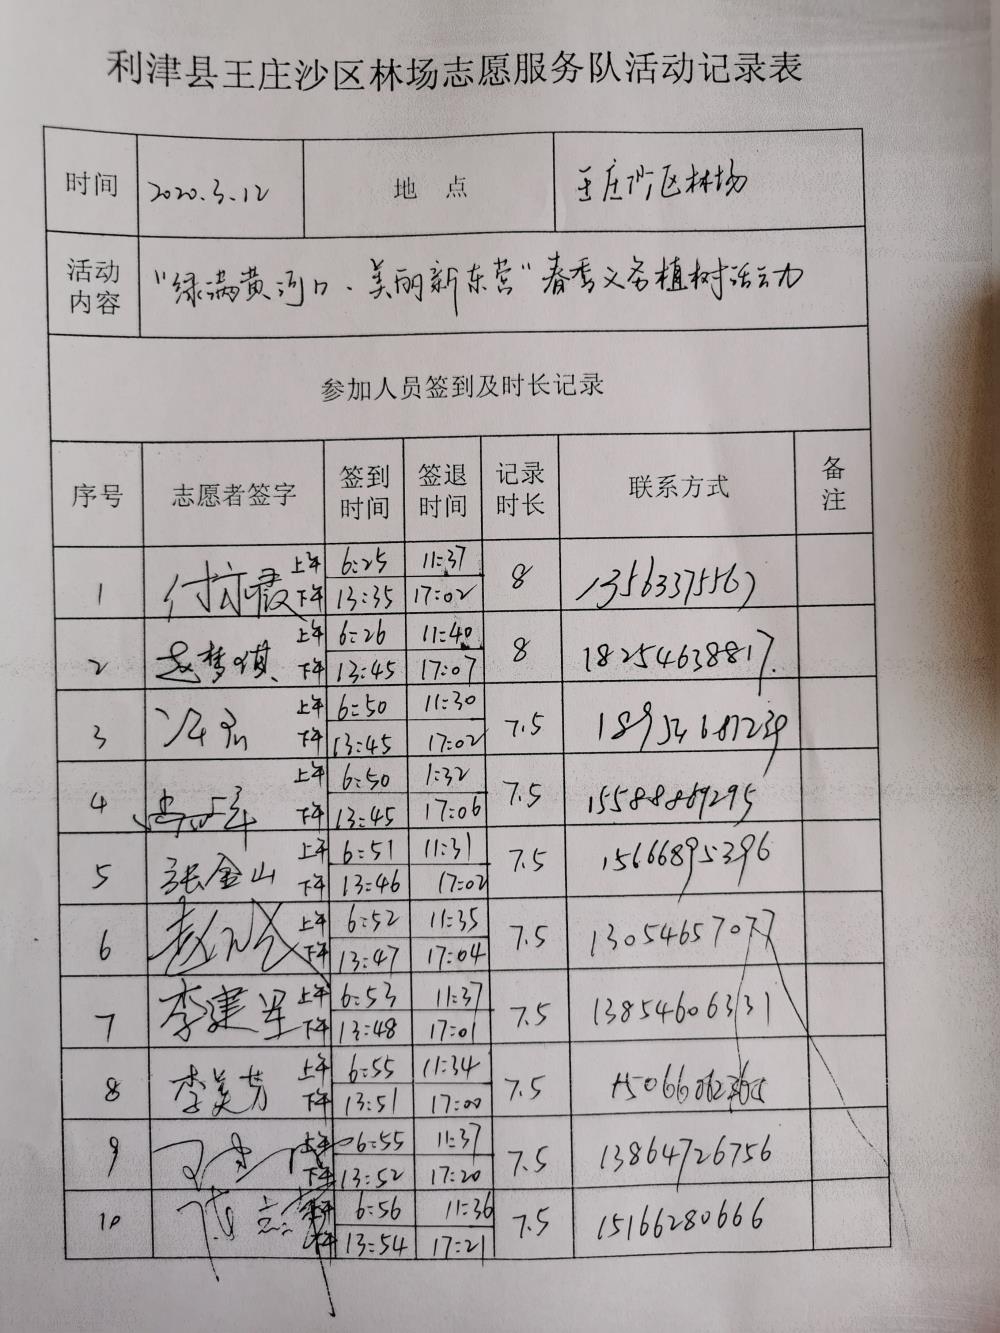 利津县王庄沙区林场志愿服务队活动记录表
时间 2020.3.12 地 点 王庄沙区林场
活动内容 "绿满黄河口、美丽新东营"春季义务植树活动
参加人员签到及时长记录
序号 志愿者签字 签到时间 签退时间 记录时长 联系方式 备注
1 上午 6:25 11:37 8 13563375567
下午 13:35 17:02
2 赵梦琪 上午 6:26 11:40 8 18254638817
下午 13:45 17:07
3 上午 6:50 11:30 7.5
下午 13:45 17:02
4 上午 6:50 1:32 7.5 15588869295
下午 13:45 17:06
5 张金山 上午 6:51 11:31 7.5 15666895396
下午 13:46 17:02
6 上午 6:52 11:35 7.5 13054657077
下午 13:47 17:04
7 李建军 上午 6:53 11:37 7.5 13854606331
下午 13:48 17:01
8 李美芳 上午 6:55 11:34 7.5
下午 13:51 17:00
9 上午 6:55 11:37 7.5 13864726756
下午 13:52 17:20
10 6:56 11:36 7.5 15166280666
下午 13:54 17:21